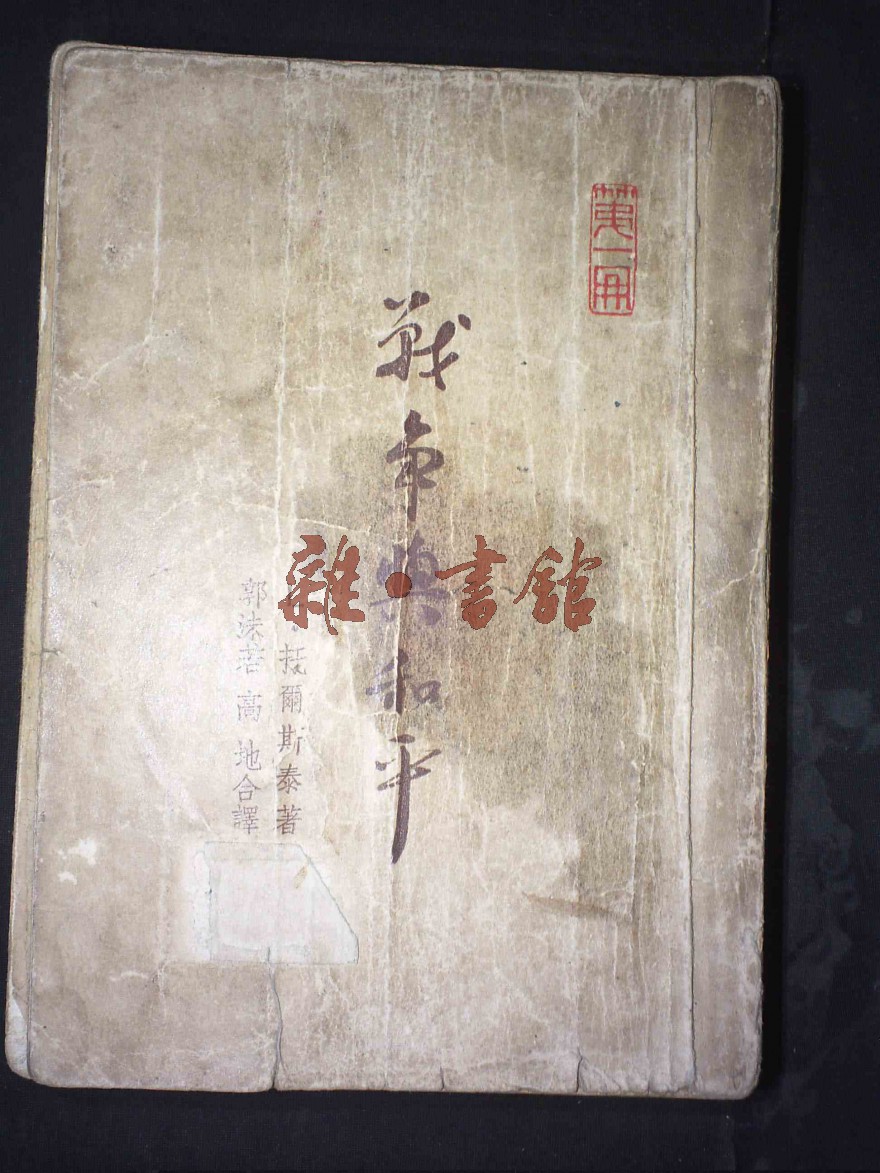 第一冊
戰爭與和平
托爾斯泰著
郭沫若 高 地合譯
雜·書館